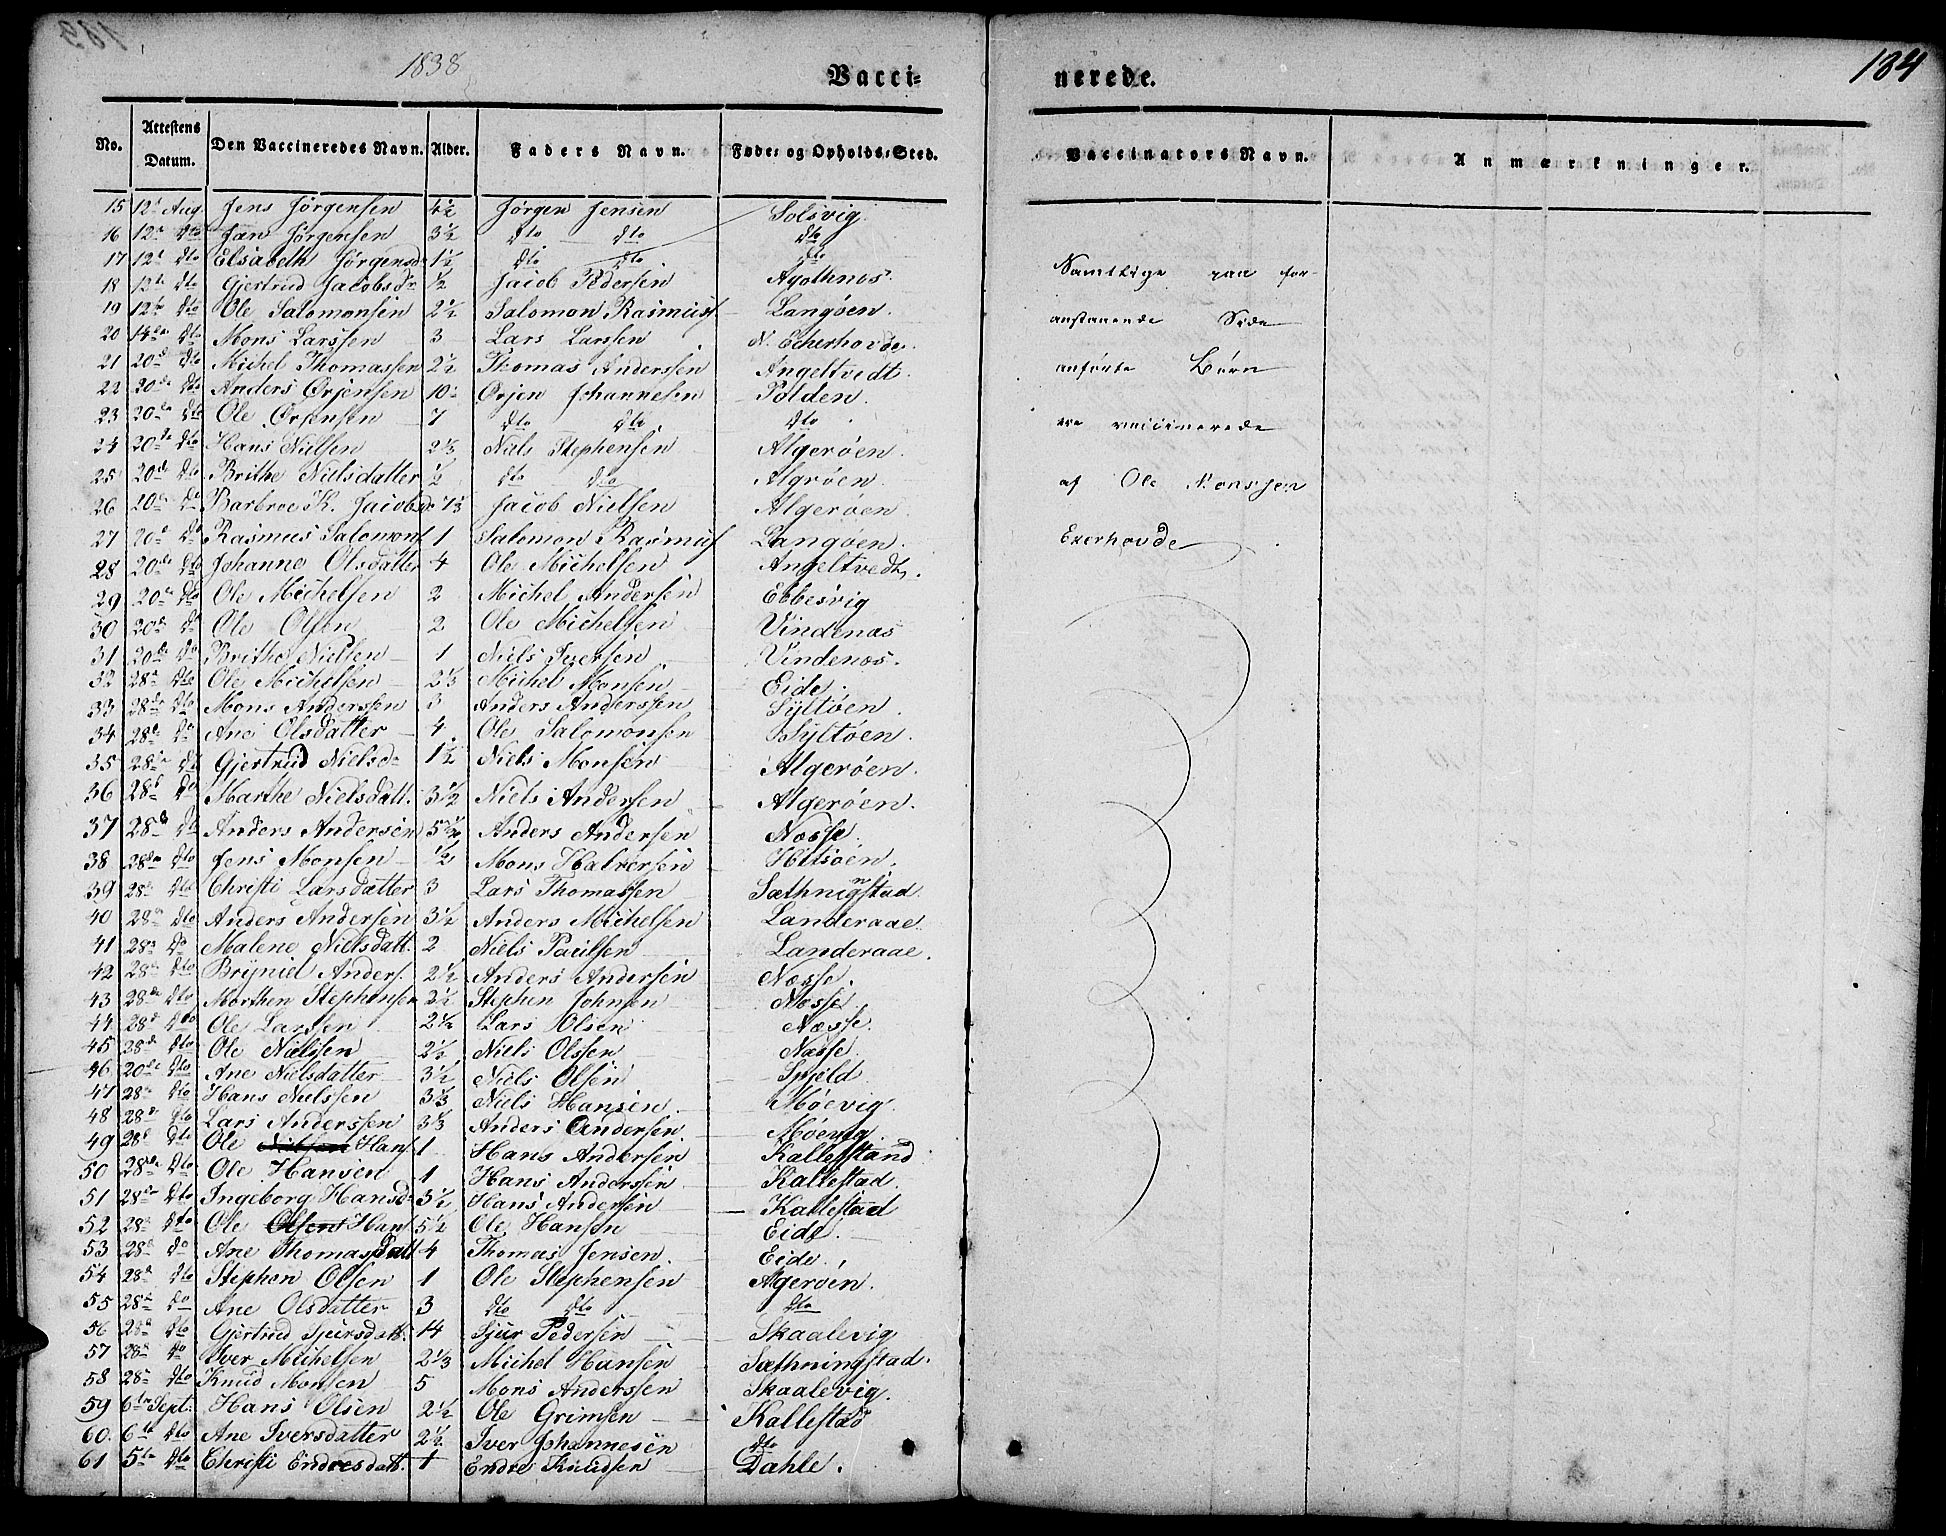 1838
Vacci= nerede. 184
No. Attestens Datum. Den Vaccineredes Navn. Alder. Faders Navn. Føde= og Opholds=Sted. Vaccinators Navn. Anmærkninger.
15 12t Aug. Jens Jørgensen 4½ Jørgen Jensen Solsvig.
16 12t dto Jørgensen 3½ dto dto dto
17 12t dto Elsabeth Jørgensdr 1½ dto dto dto
18 12te dto Gjertrud Jacobsdr ½ Jacob Pedersen Agothnes
19 12te dto Ole Salomonsen 2½ Salomon Rasmuss Langøen.
20 14de dto Mons Larssen 3 Lars Larssen N. Eckerhovde.
21 20d dto Michel Thomassen 2½ Thomas Anderssen Angeltvedt
22 20de dto Anders Ørjensen 10 Ørjen Johannesen Polden.
23 20de dto Ole Ørjensen 7 dto dto dto
24 20de dto Hans Nielsen 2⅓ Niels Stephensen Algerøen.
25 20d dto Brithe Nielsdatter ½ dto dto Algrøen.
26 20d do Barbroe K. Jacobsdr Jacob Nielsen Algerøen.
27 20d do Rasmus Salomons 1 Salomon Rasmuss Langøen.
28 20de dto Johanne Olsdatter 4 Ole Michelsen Angeltvedt.
29 20d dto Ole Michelsen 2 Michel Andersen Ebbesvig
30 20d do Ole Olsen 2 Ole Michelsen Vindenæs
31 20de do Brithe Nielsen 1 Niels Iversen Vindenæs.
32 28d dto Ole Michelsen 2⅓ Michel Monsen Eide.
33 28de dto Mons Anderssen 3 Anders Anderssen Syltøen.
34 28d do Ane Olsdatter 4 Ole Salomonsen Syltøen.
35 28d dto Gjertrud Nielsdr 1½ Niels Monsen Algerøen.
36 28d do Marthe Nielsdatt. 3½ Niels Andersen Algerøen.
37 28d dto Anders Andersen 5½ Anders Andersen Næsse.
38 28de dto Jens Monsen ½ Mons Halversen
39 28d dto Christi Larsdatter 3 Lars Thomassen Sæthningstad
40 28d dto Anders Andersen 3½ Anders Michelsen Landeraae.
41 28d do Malene Nielsdatt. 2 Niels Paulsen Landeraae.
42 28d dto Brÿniel Anders. 2½ Anders Andersen Næsse.
43 28de dto Morthen Stephensen 2½ Stephen Johnsen Næsse.
44 28d dto Ole Larssen 2½ Lars Olsen Næsse.
45 28de dto Ole Nielssen 2½ Niels Olssen Næsse.
46 20de dto Ane Nielsdatter 3½ Niels Olsen Spjeld
47 28d dto Hans Nielssen 3⅓ Niels Hansen Møevig.
48 28d dto Lars Anderssen 3⅓ Anders Andersen. Møevig.
49 28d dto Ole Nielsen Hans 1 Hans Andersen Kallestand
50 28de dto Ole Hansen 1 Hans Anderssen Kallestad.
51 28de dto Ingeborg Hansdr 3½ Hans Andersen Kallestad
52 28d dto Ole Olsen Hans 5½ Ole Hansen Eide.
53 28d do Ane Thomasdatt 4 Thomas Jensen Eide.
54 28d dto Stephen Olsen 1 Ole Stephensen Algerøen.
55 28d do Ane Olsdatter 3 dto dto dto
56 28d dto Gjertrud Sjursdatt. 14 Sjur Pedersen Skaalevig
57 28d do Iver Michelsen 2⅓ Michel Hansen Sæthningstad.
58 28d dto Knud Monsen 5 Mons Anderssen Skaalevig.
59 6te Sept. Hans Olsen 2½ Ole Grimsen Kallestad
60. 6te dto Ane Iversdatter 2½ Iver Johannesen dto
61 5te dto Christi Endresdatt. 1 Endre Knudsen Dahle.
Samtlige paa for-
anstaaende Side
anførte Børn
ere vaccinerede
af Ole Monssen
Ekerhovde